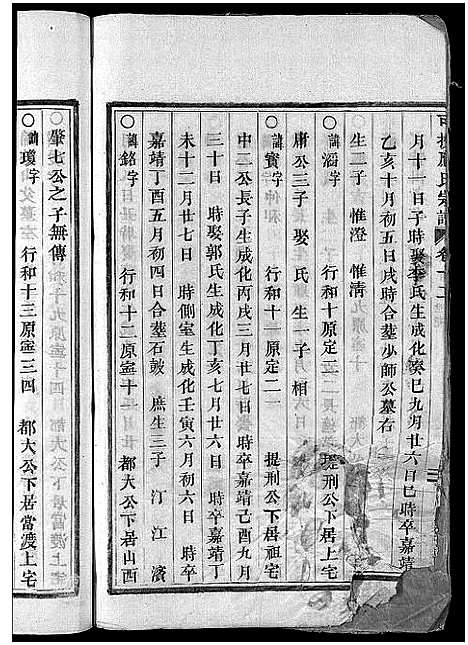 月十一日子時娶李氏生成化癸巳九月廿六日巳時卒嘉靖
乙亥十月初五日戌時合塟少師公墓右
生二子 惟澄 惟清
○諱滔字 行和十原定二 提刑公下居上宅
庸公三子 娶 氏 生一子 相
○諱寳字 行和十一原定二一 提刑公下居祖宅
中二公長子生成化丙戌三月廿七日 時卒嘉靖己酉九月
三十日 時娶郭氏生成化丁亥七月廿六日 時卒嘉靖丁
未十二月廿七日 時側室生成化壬寅六月初六日 時卒
嘉靖丁酉五月初四日合塟石鼓 庶生三子 汀 江 濱
○諱銘字 行和十二原寍十一 都大公下居山西
肇七公之子無傳
○諱瓊字 行和十三原寍三四 都大公下居當渡上宅